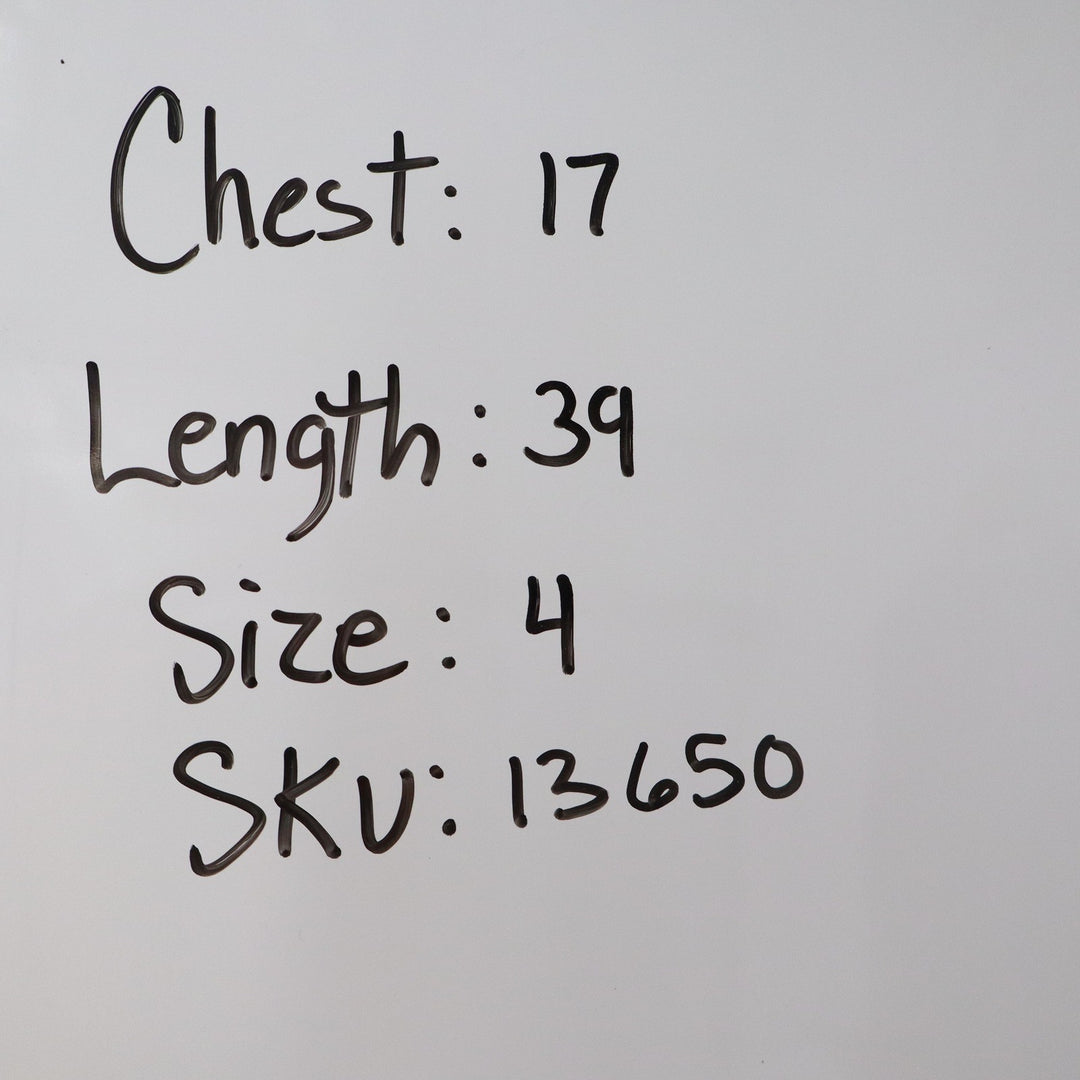 Chest: 17
Length: 39
Size: 4
SKU: 13650